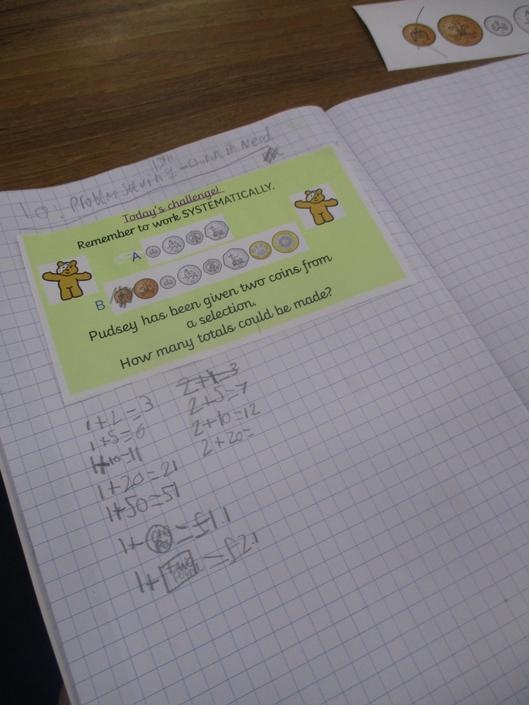 LO: Problem Solving - Children in Need
Today's challenge!
Remember to work SYSTEMATICALLY.
A
B
Pudsey has been given two coins from
a selection.
How many totals could be made?
1+2=3
1+5=6
1+10=11
1+20=21
1+50=51
1+ =£1.1
1+ =£2.1
2+1=3
2+5=7
2+10=12
2+20=